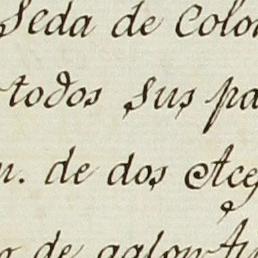 Seda de Colo
todos sus pa
n. de dos Ace
de galon